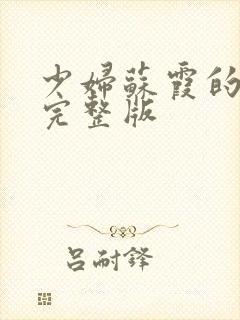 少婦蘇霞的
完整版
呂耐鋒